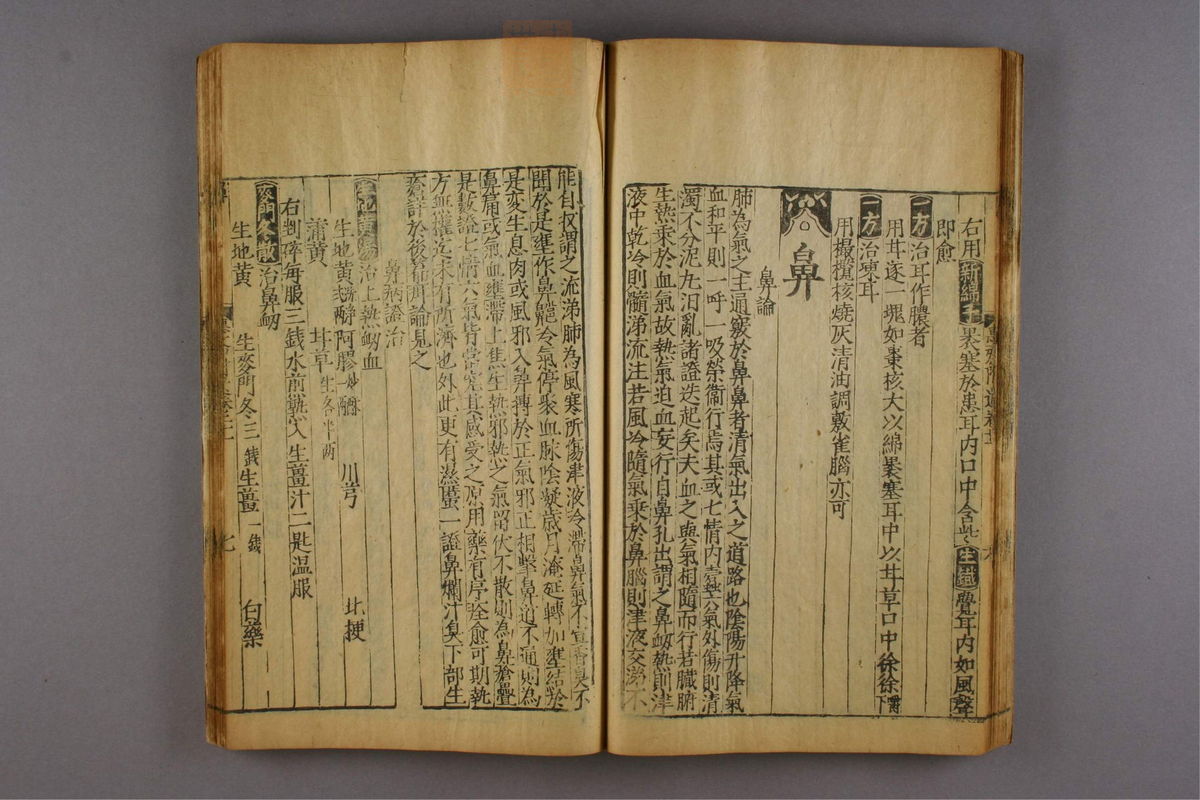 右用新綿暴塞於患耳内口中含些生鐵覺耳内如風聲
即愈
一方治耳作膿者
用耳逐一塊如棗核大以綿暴塞耳中以甘草口中徐徐嚼下
一方治凍耳
用橄欖核燒灰清油調敷雀腦亦可
鼻
鼻論
肺為氣之主通竅於鼻鼻者清氣出入之道路也陰陽升降氣
血和平則一呼一吸榮衛行焉其或七情内鬱六氣外傷則清
濁不分泥丸汩亂諸證迭起矣夫血之與氣相隨而行若臟腑
生熱乘於血氣故熱氣迫血妄行自鼻孔出謂之鼻衂熱則津
液中乾冷則隨涕流注若風冷隨氣乘於鼻腦則津液交涕不
能自収謂之流涕肺為風寒所傷津液冷滯鼻氣不宣香臭不
聞於是壅作鼻齆冷氣停聚血脉陰凝歲月淹延轉加壅結於
是変生息肉或風邪入鼻搏於正氣邪正相擊鼻道不通則為
鼻痛或氣血壅滯上焦生熱邪熱之氣留伏不散則為鼻瘡疊
是數證七情六氣皆當究其感受之原用藥有序痊愈可期執
方無權迄未有所濟也外此更有濕䘌一證鼻爛汁臭下部生
瘡詳於後備用論見之
鼻病證治
生地黄湯治上熱衂血
生地黄 阿膠 川芎 北梗
蒲黄 甘草生各半两
右剉碎每服三錢水煎熟入生薑汁二匙温服
麥門冬散治鼻衂
生地黄 生麥門冬三錢 生薑一錢 白藥
七